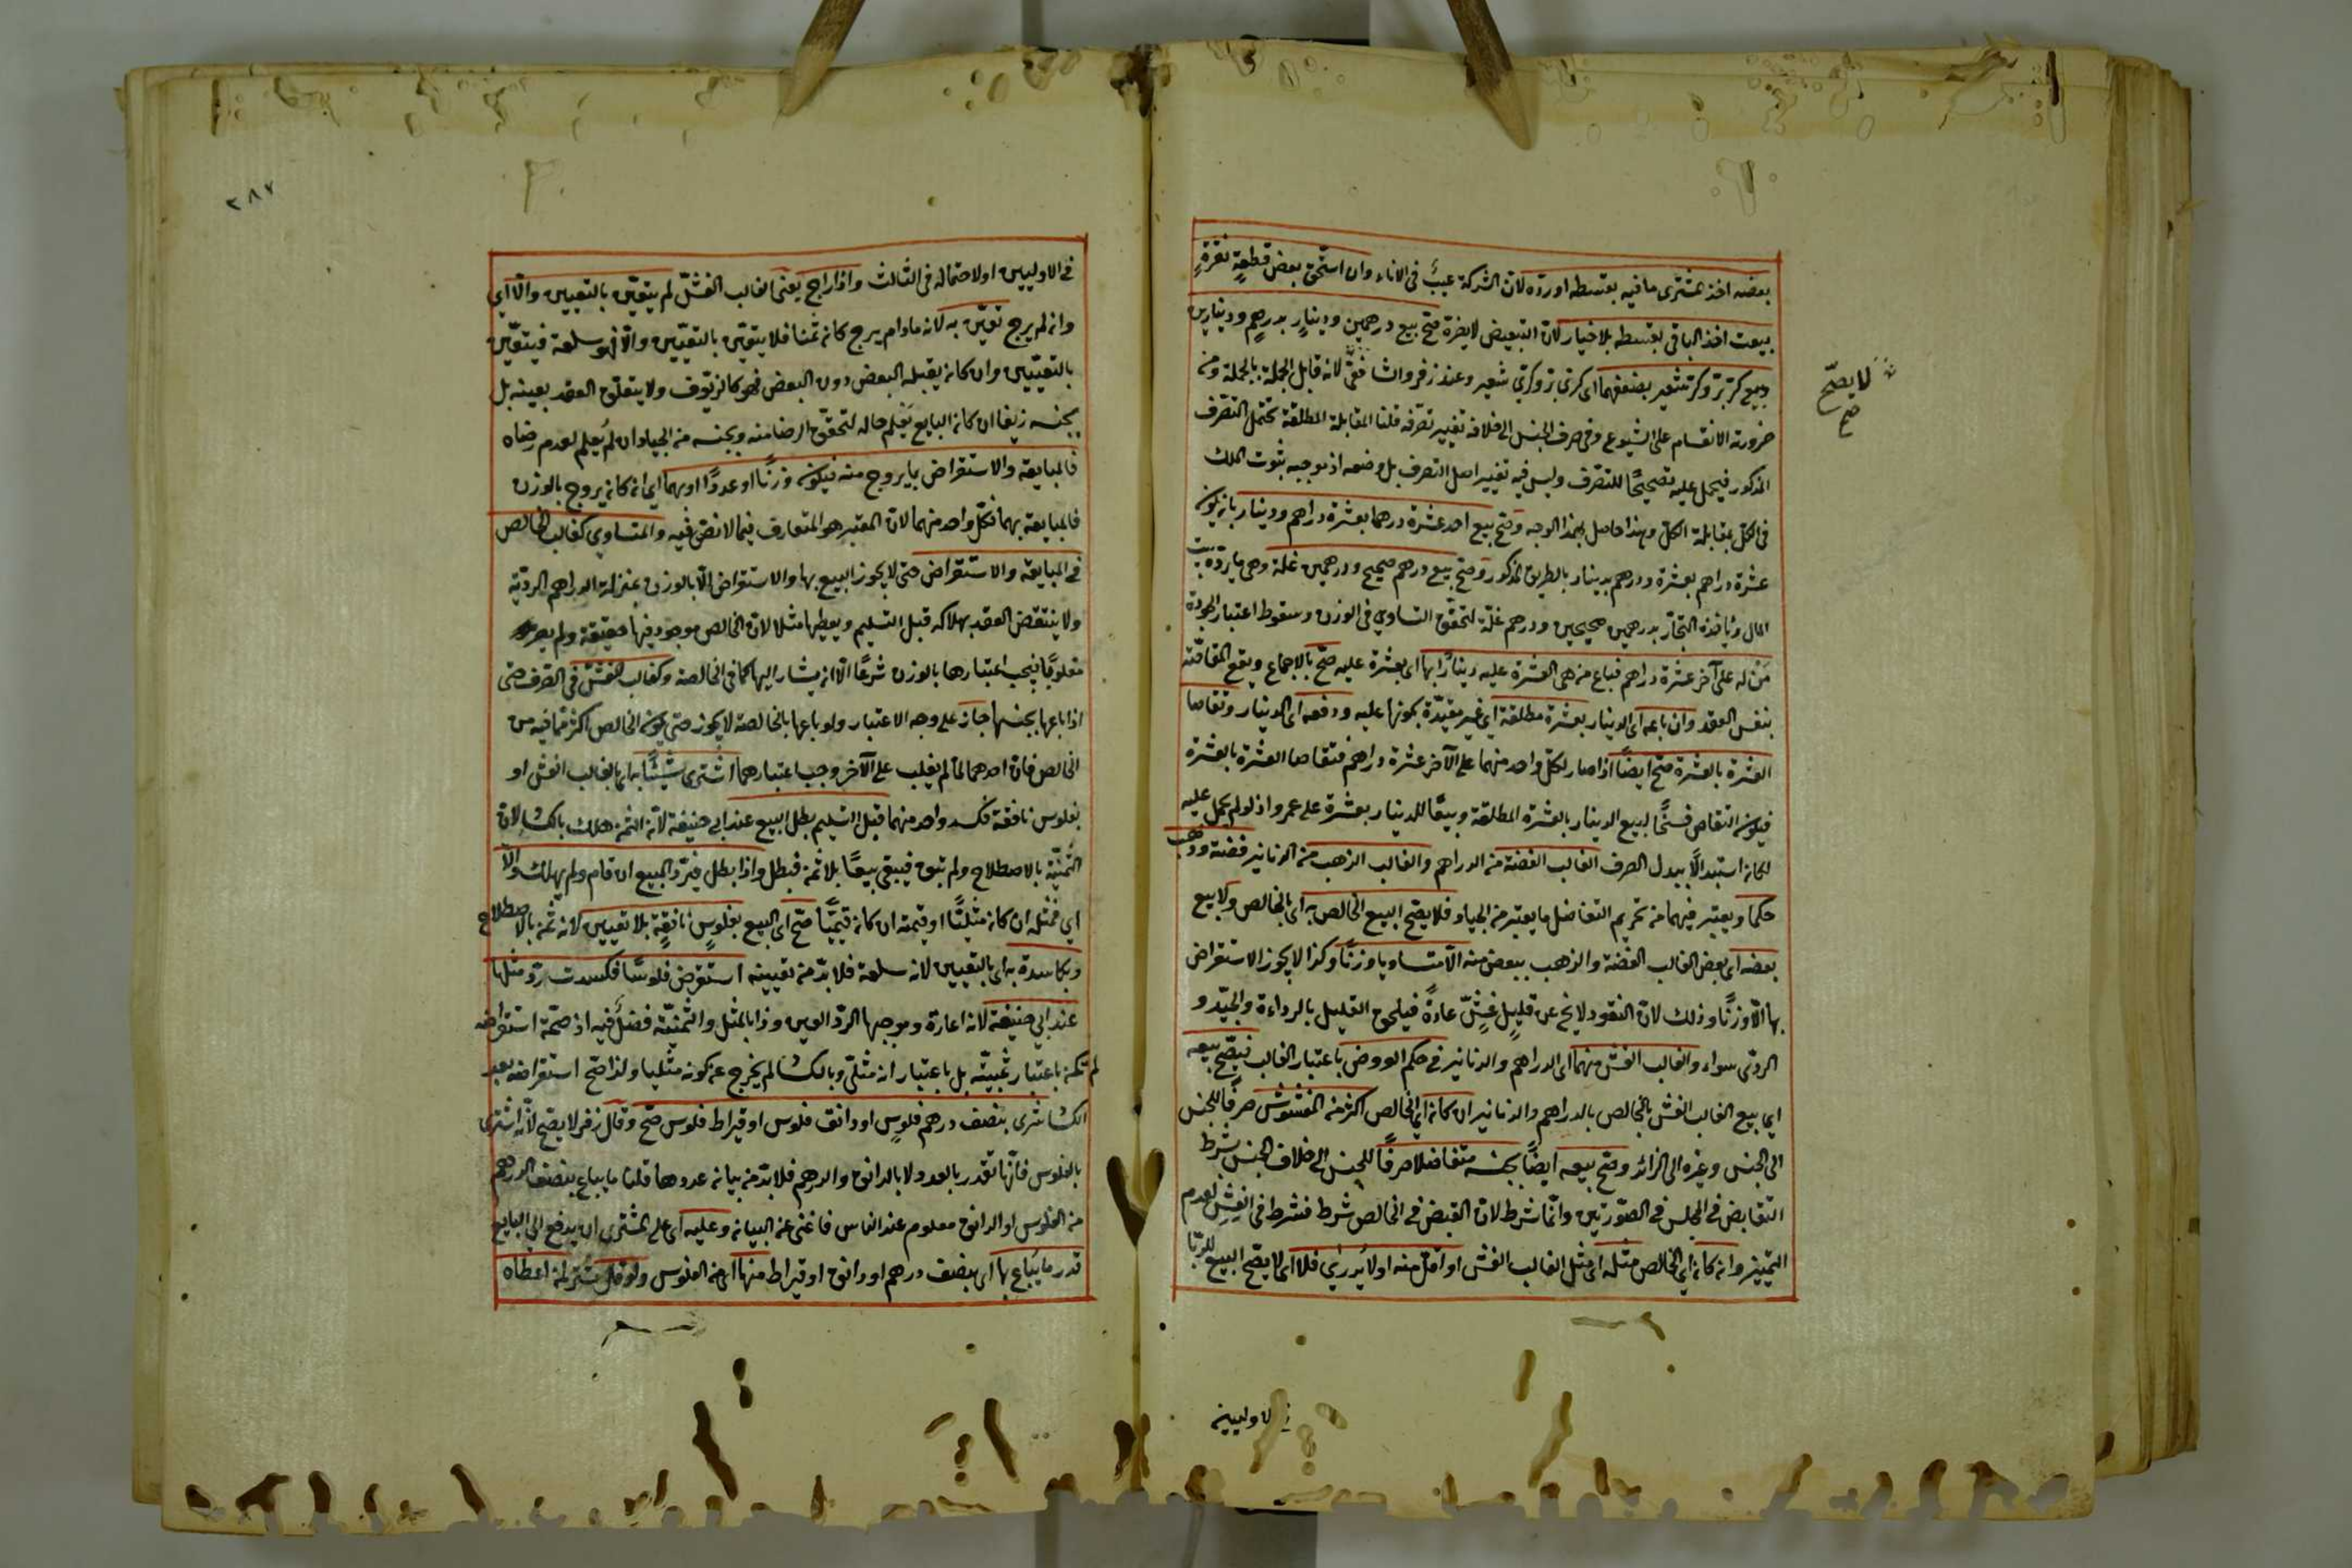 بعضه اخذ المشترى ما فيه بقسطه او رده لان الشركة عيب في الاناء وان استحق بعض قطعة نقرة
بيعت اخذ الباقى بقسطه بلا خيار لان التبعيض لا يضره صح بيع درهمين ودينار بدرهم ودينارين
وبيع كر بر وكر شعير بضعفهما اى كرى بر وكرى شعير وعند زفر والشافعى لانه قابل الجملة بالجملة ومن
لا يصح
صح
ضرورته الانقسام على الشيوع وفى صرف الجنس الى خلافه تغيير تصرفه قلنا المقابلة المطلقة تحتمل التصرف
المذكور فيحمل عليه تصحيحا للتصرف وليس فيه تغيير اصل التصرف بل وصفه اذ موجبه ثبوت الملك
فى الكل بمقابلة الكل وهذا حاصل بهذا الوجه وصح بيع احد عشرة درهما بعشرة دراهم ودينار بان يكون
عشرة دراهم بعشرة ودرهم بدينار بالطريق المذكور وصح بيع درهم صحيح ودرهمين غلة وهى ما يرده بيت
المال ويأخذه التجار بدرهمين صحيحين ودرهم غلة لتحقق التساوى فى الوزن وسقوط اعتبار الجودة
من له على آخر عشرة دراهم فباع من هى العشرة عليه دينارا بها اى بعشرة عليه صح بالاجماع ويقع المقاصة
بنفس العقد وان باعه اى الدينار بعشرة مطلقة اى غير مقيدة بكونها عليه ودفعه اى الدينار وتقاصا
العشرة بالعشرة صح ايضا اذا صار لكل واحد منهما على الآخر عشرة دراهم فتقاصا العشرة بالعشرة
فيكون التقاص فسخا لبيع الدينار بالعشرة المطلقة وبيعا للدينار بعشرة على عمرو اذ لو لم يحمل عليه
لكان استبدالا ببدل الصرف الغالب الفضة من الدراهم والغالب الذهب من الدنانير فضة وذهب
حكما ويعتبر فيهما من تحريم التفاضل ما يعتبر من الجياد فلا يصح البيع الخالص به اى بالخالص ولا بيع
بعضه اى بعض الغالب الفضة والذهب ببعض منه الا متساويا وزنا وكذا لا يجوز الاستقراض
بها الا وزنا وذلك لان النقود لا يخ عن قليل غش عادة فيلحق القليل بالرداءة والجيد و
الردى سواء والغالب الغش منهما اى الدراهم والدنانير فى حكم العروض باعتبار الغالب فيصح بيعه
اى بيع الغالب الغش بالخالص بالدراهم والدنانير ان كان اى الخالص اكثر من المغشوش صرفا للجنس
الى الجنس وغيره الى الزائد وصح بيعه ايضا بجنسه متفاضلا صرفا للجنس الى خلاف الجنس بشرط
التقابض فى المجلس فى الصورتين وانما شرط لان القبض فى الخالص شرط فشرط فى الغش لعدم
التمييز وان كان اى الخالص مثله اى مثل الغالب الغش او اقل منه او لا يدرى فلا اى لا يصح البيع للربا
فى الاوليين
٢٨٧
فى الاوليين او لاحتماله فى الثالث واذا راج يعنى الغالب الغش لم يتعين بالتعيين والا اى
وان لم يرج تعين به لانه مادام يرج كان ثمنا فلا يتعين بالتعيين والا فهو سلعة فيتعين
بالتعيين وان كان يقبله البعض دون البعض فهو كالزيوف ولا يتعلق العقد بعينه بل
بجنسه زيفا ان كان البايع يعلم حاله لتحقق الرضا منه وبجنسه من الجياد ان لم يعلم لعدم رضاه
فالمبايعة والاستقراض بما يروج منه فيكون وزنا او عددا او بهما اى ان كان يروج بالوزن
فالمبايعة بهما فكل واحد منهما لان المعتبر هو المتعارف فيما لا نص فيه والمتساوى كغالب الخالص
فى المبايعة والاستقراض حتى لا يجوز البيع بها والاستقراض الا بالوزن بمنزلة الدراهم الردية
ولا ينتقض العقد بهلاكه قبل التسليم ويعطيها مثلا لان الخالص موجود فيها حقيقة ولم يصر
مغلوبا فيجب اعتبارها بالوزن شرعا الا ان يشار اليها كما فى الخالصة وكغالب الغش فى الصرف حتى
اذا باعها بجنسها جاز على وجه الاعتبار ولو باعها بالخالصة لا يجوز حتى يكون الخالص اكثر مما فيه من
الخالص فان احدهما لما لم يغلب على الآخر وجب اعتبارهما اشترى شيئا به اى بالغالب الغش او
بفلوس نافقة فكسد واحد منهما قبل التسليم بطل البيع عند ابى حنيفة لان الثمن هلك بالكساد لان
الثمنية بالاصطلاح ولم تبق فيبقى بيعا بلا ثمن فبطل واذا بطل فيرد المبيع ان قام ولم يهلك والا
اى فمثله ان كان مثليا او قيمته ان كان قيميا صح اى البيع بفلوس نافقة بلا تعيين لانه ثمن بالاصطلاح
وبكاسدة به اى بالتعيين لانه سلعة فلا بد من تعيينه استقرض فلوسا فكسدت رد مثلها
عند ابى حنيفة لانه اعارة وموجبها الرد العين وذا بالمثل والثمنية فضل فيه اذ صحة استقراضه
لم تكن باعتبار ثمنيته بل باعتبار انه مثلى وبالكساد لم يخرج عن كونه مثليا ولذا صح استقراضه بعد
الكساد اشترى بنصف درهم فلوس او دانق فلوس او قيراط فلوس صح وقال زفر لا يصح لانه اشترى
بالفلوس فانها تقدر بالعدد لا بالدانق والدرهم فلا بد من بيان عددها قلنا ما يباع بنصف الدرهم
من الفلوس او الدانق معلوم عند الناس فاغنى عن البيان وعليه اى على المشترى ان يدفع الى البايع
قدر ما يباع بها اى بنصف درهم او دانق او قيراط منها اى من الفلوس ولو قال لمن اعطاه